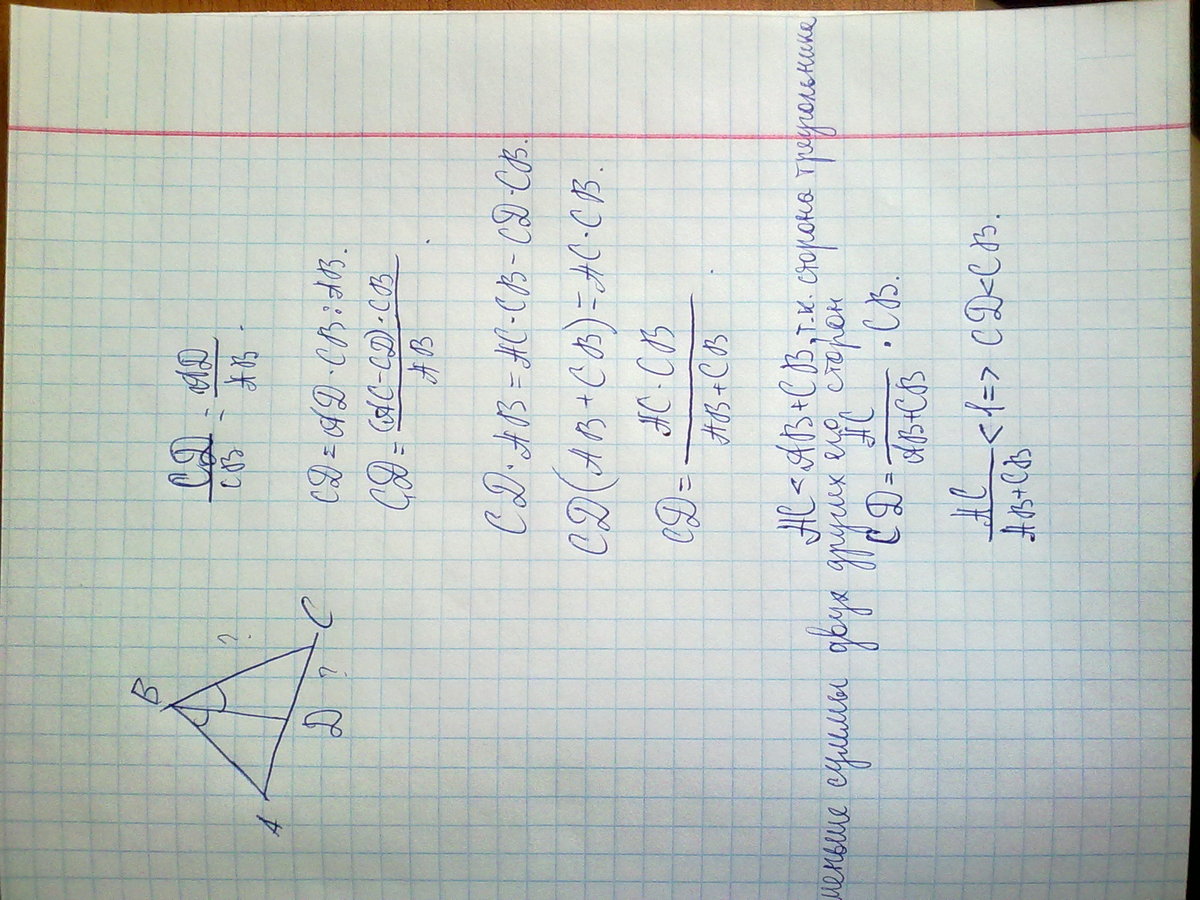 B
?
A
D
?
C
CD/CB = AD/AB.
CD = AD·CB:AB.
CD = (AC-CD)·CB/AB.
CD·AB = AC·CB - CD·CB.
CD(AB + CB) = AC·CB.
CD = AC·CB/AB+CB.
AC < AB+CB, т.к. сторона треугольника
меньше суммы двух других его сторон
CD = AC/AB+CB · CB.
AC/AB+CB < 1 => CD<CB.